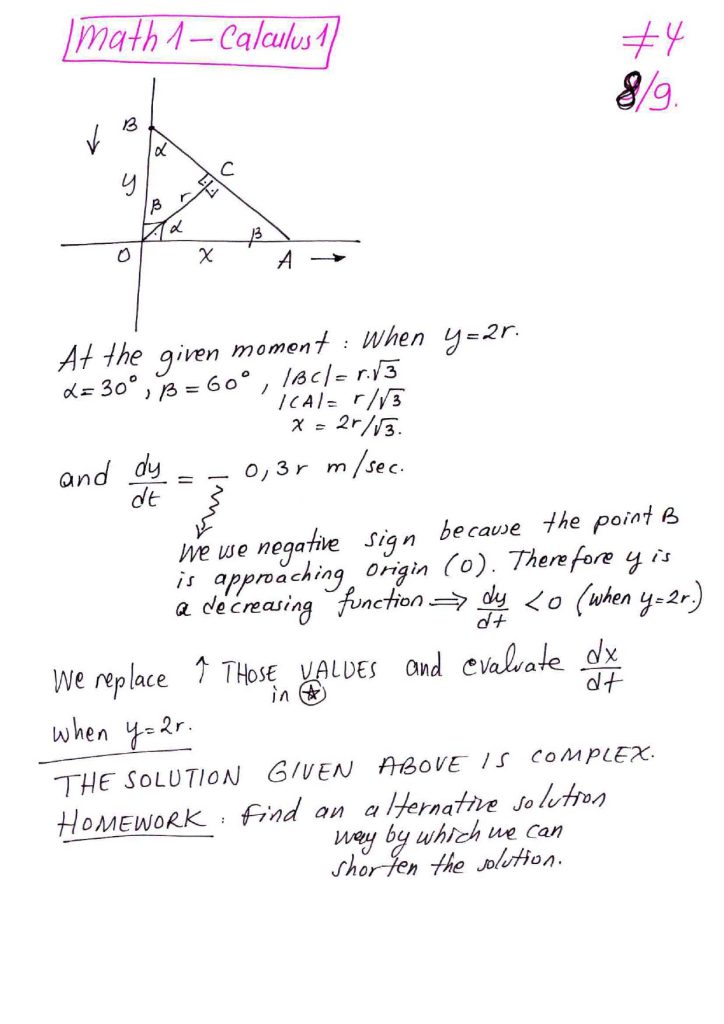 Math 1 – Calculus 1
#4
8/9.
B
α
C
y
r
β
α
β
O
x
A
At the given moment : When y=2r.
α=30°, β=60°, |BC|= r.√3
|CA|= r/√3
x = 2r/√3.
and dy/dt = – 0,3r m/sec.
We use negative sign because the point B
is approaching origin (0). Therefore y is
a decreasing function ⟹ dy/dt <0 (when y=2r.)
We replace ↑ THOSE VALUES and evaluate dx/dt
in ⍟
when y=2r.
THE SOLUTION GIVEN ABOVE IS COMPLEX.
HOMEWORK : find an alternative solution
way by which we can
shorten the solution.